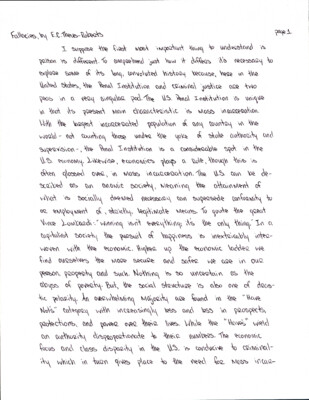 Fallacies, by E.C. Theus-Roberts page 1
I suppose the first most important thing to understand is
prison is different. To comprehend just how it differs its necessary to
explore some of its long, convoluted history because, here in the
United States, the Penal Institution and criminal justice are two
peas in a very singular pod. The U.S. Penal Institution is unique
in that its present main characteristic is mass incarceration.
With the largest incarcerated population of any country in the
world - not counting those under the yoke of state authority and
supervision -, the Penal Institution is a considerable spot in the
U.S. economy. Likewise, economics plays a role, though this is
often glossed over, in mass incarceration. The U.S. can be de-
scribed as an anomic society, meaning the attainment of
what is socially deemed necessary can supersede conformity to
or employment of, strictly legitimate means. To quote the great
Vince Lombardi: Winning isn't everything its the only thing. In a
capitalist society the pursuit of happiness is inextricably inter-
woven with the economic. Higher up the economic ladder we
find ourselves the more secure and safer we are in our
person, property and such. Nothing is so uncertain as the
abyss of poverty. But, the social structure is also one of dras-
tic polarity. An overwhelming majority are found in the "Have
Nots" category with increasingly less and less in prospects,
protections, and power over their lives. While the "Haves" wield
an authority disproportionate to their numbers. The economic
focus and class disparity in the U.S. is conducive to criminal-
ity which in turn gives place to the need for mass incar-